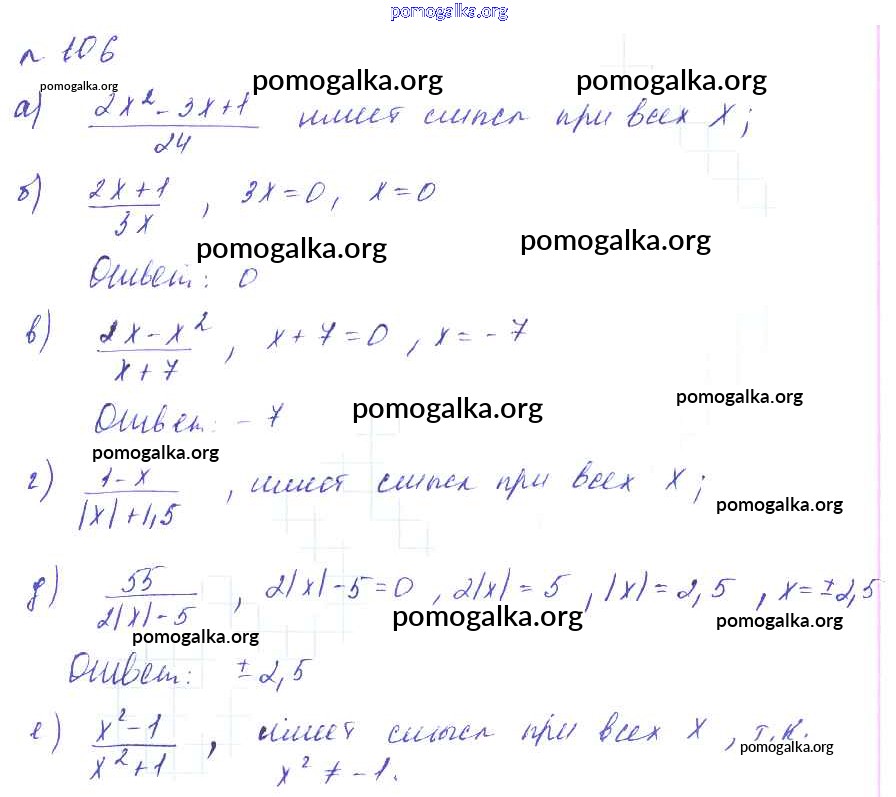 pomogalka.org
№ 106
pomogalka.org pomogalka.org pomogalka.org
а) (2x² - 3x + 1)/24 имеет смысл при всех x;
б) (2x + 1)/(3x), 3x = 0, x = 0
pomogalka.org pomogalka.org
Ответ: 0
в) (2x - x²)/(x + 7), x + 7 = 0, x = -7
pomogalka.org
Ответ: -7 pomogalka.org
pomogalka.org
г) (1 - x)/(|x| + 1,5), имеет смысл при всех x;
pomogalka.org
д) 55/(2|x| - 5), 2|x| - 5 = 0, 2|x| = 5, |x| = 2,5, x = ±2,5
pomogalka.org pomogalka.org pomogalka.org
Ответ: ±2,5
е) (x² - 1)/(x² + 1), имеет смысл при всех x, т.к.
pomogalka.org
x² ≠ -1.